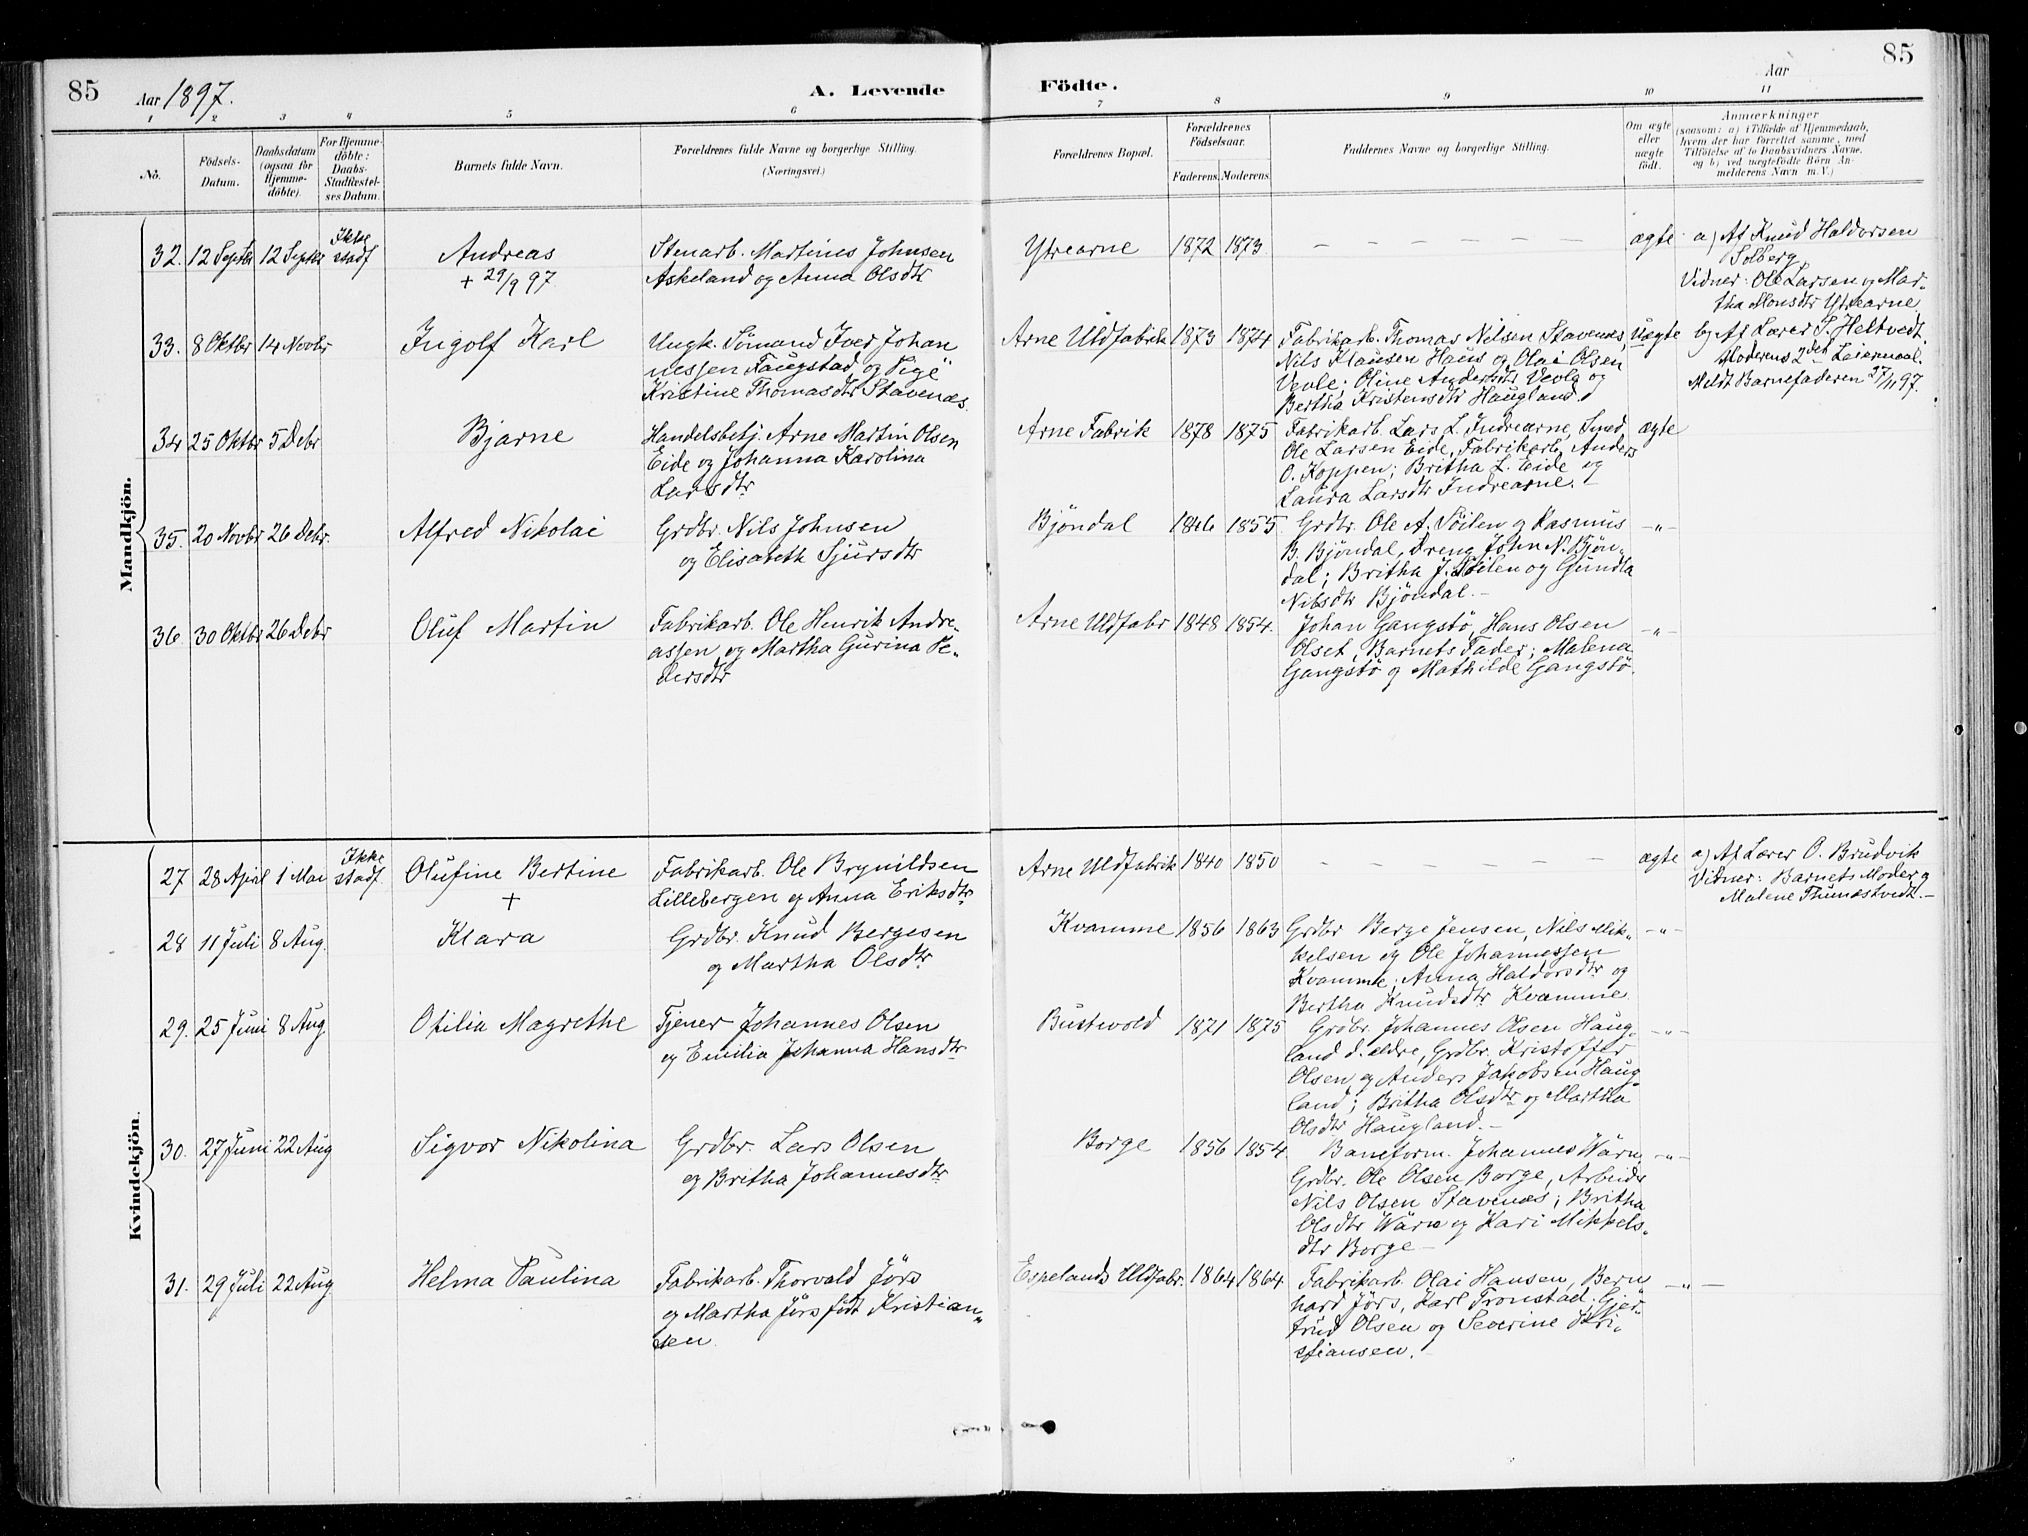 85
Aar 1897.
A. Levende
Födte.
Aar
85
1 2 3 4 5 6 7 8 9 10 11
No.
Födsels-
Datum.
Daabsdatum
(ogsaa for
Hjemme-
döbte).
For Hjemme-
döbte:
Daabs-
Stadfæstel-
ses Datum.
Barnets fulde Navn.
Forældrenes fulde Navne og borgerlige Stilling.
(Næringsvei.)
Forældrenes Bopæl.
Forældrenes
Födselsaar.
Faderens. Moderens.
Faddernes Navne og borgerlige Stilling.
Om ægte
eller
uægte
födt.
Anmærkninger
(saasom: a) i Tilfælde af Hjemmedaab,
hvem der har forrettet samme, med
Tilföielse af to Daabsvidners Navne,
og b) ved uægtefödte Börn An-
melderens Navn m. V.)
Mandkjön.
32. 12 Septbr 12 Septbr
Ikke
stadf
Andreas
+ 29/9 97
Stenarb. Martines Johnsen
Askeland og Anna Olsdtr
Ytrearne
1872 1873
– – – – – – – –
ægte
a) Af Knud Haldorsen
Solberg
Vidner: Ole Larsen og Mar-
tha Monsdtr Ytrearne
33. 8 Oktbr 14 Novbr
Ingolf Karl
Ungk. Sömand Iver Johan
nessen Faugstad og Pige
Kristine Thomasdtr Stavenæs.
Arne Uldfabrik
1873 1874
Fabrikarb. Thomas Nilsen Stavenæs,
Nils Klausen Haus og Olai Olsen
Vevle; Oline Andersdtr Vevle og
Bertha Kristensdtr Haugland.
Uægte
b) Af Lærer S. Heltvedt.
Moderens 2det Leiermaal.
Meldt Barnefaderen 27/11 97.
34 25 Oktbr 5 Debr
Bjarne
Handelsbetj. Arne Martin Olsen
Eide og Johanna Karolina
Larsdtr
Arne Fabrik
1878 1875
Fabrikarb. Lars L. Indrearne, Smed
Ole Larsen Eide, Fabrikarb. Anders
O. Koppen; Britha L. Eide og
Laura Larsdtr Indrearne. –
ægte
35. 20 Novbr 26 Debr.
Alfred Nikolai
Grdbr. Nils Johnsen
og Elisabeth Sjursdtr
Bjöndal
1846 1855
Grdbr. Ole A. Söilen og Rasmus
B. Bjöndal, Dreng John N. Bjön-
dal; Britha J. Söilen og Gundla
Nilsdtr Bjöndal. –
–"–
36. 30 Oktbr 26 Debr
Oluf Martin
Fabrikarb. Ole Henrik Andre-
assen og Martha Gurina Pe-
dersdtr
Arne Uldfabr
1848 1854.
Johan Gangstö, Hans Olsen
Olset, Barnets Fader; Malena
Gangstö og Mathilde Gangstö.
–"–
Kvindekjön.
27 28 April 1 Mai
Ikke
stadf.
Olufine Bertine
+
Fabrikarb. Ole Brynildsen
Lillebergen og Anna Eriksdtr
Arne Uldfabrik
1840 1850
– – – – – – – –
ægte
a) Af Lærer O. Brudvik
Vidner: Barnets Moder og
Malene Thunestvedt. –
28 11 Juli 8 Aug.
Klara
Grdbr. Knud Bergesen
og Martha Olsdtr
Kvamme
1856 1863
Grdbr Berge Jensen, Nils Mik-
kelsen og Ole Johannessen
Kvamme; Anna Haldorsdtr og
Bertha Knudsdtr Kvamme
–"–
29. 25 Juni 8 Aug.
Otilia Magrethe
Tjener Johannes Olsen
og Emilia Johanna Hansdtr
Bustvold
1871 1875
Grdbr. Johannes Olsen Haug-
land d. ældre, Grdbr. Kristoffer
Olsen og Anders Jakobsen Haug-
land; Britha Olsdtr og Martha
Olsdtr Haugland. –
–"–
30. 27 Juni 22 Aug
Sigvor Nikolina
Grdbr. Lars Olsen
og Britha Johannesdtr
Borge
1856 1854.
Baneform. Johannes Wårn
Grdbr. Ole Olsen Borge, Arbeider
Nils Olsen Stavenæs; Britha
Olsdtr Wårn og Kari Mikkels-
dtr Borge –
–"–
31. 29 Juli 22 Aug.
Helma Paulina
Fabrikarb. Thorvald Jörs
og Martha Jörs födt Kristian-
sen.
Espelands Uldfabr.
1864 1864.
Fabrikarb. Olai Hansen, Bern
hard Jörs, Karl Tronstad; Gjer-
trud Olsen og Severine Kri-
stiansen. –
–"–